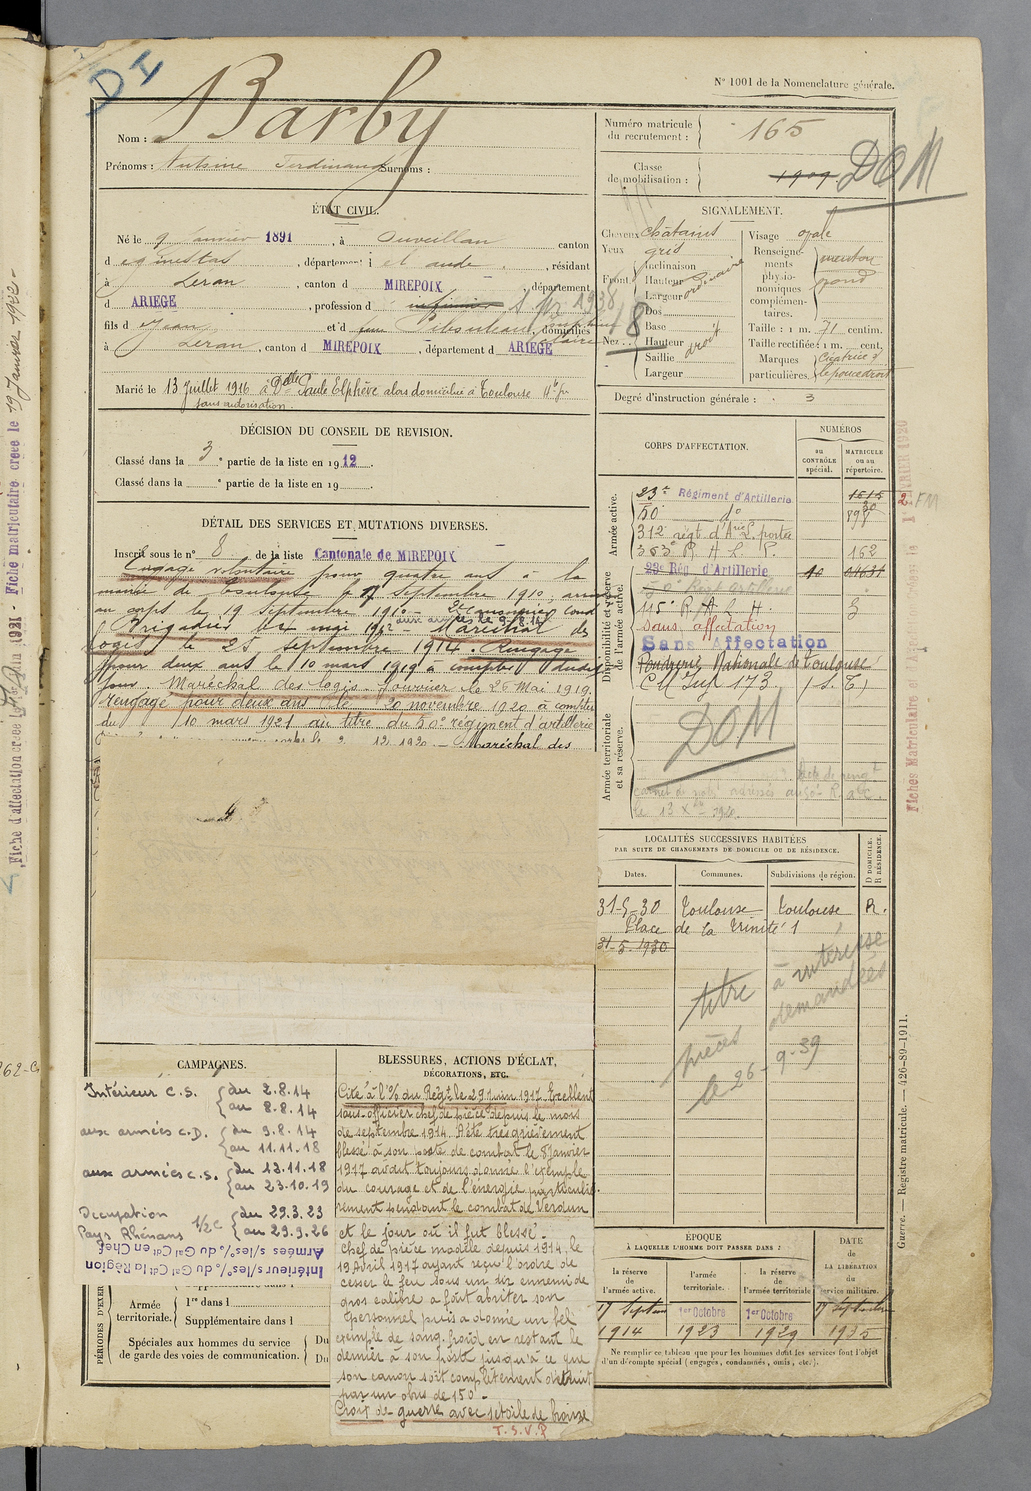 DI
N° 1001 de la Nomenclature générale.
Nom : Barby
Prénoms : Antoine Ferdinand Surnoms :
Numéro matricule du recrutement : 165
Classe de mobilisation : 1909
DOM
ÉTAT CIVIL.
Né le 9 Janvier 1891, à Ouveillan canton
d , département d el aude, résidant
à Leran, canton d MIREPOIX, département
d ARIEGE, profession d
fils d Jean et d domiciliés
à Leran, canton d MIREPOIX, département d ARIEGE
Marié le 13 Juillet 1916 à Delle Paule Elphève alors domiciliée à Toulouse
sans autorisation.
SIGNALEMENT.
Cheveux châtains
Yeux gris
Front Inclinaison
Hauteur
Largeur
ordinaire
Nez Dos
Base
Hauteur
Saillie
Largeur
droit
Visage ovale
Renseignements physionomiques complémentaires. menton rond
Taille : 1 m. 71 centim.
Taille rectifiée : 1 m. cent.
Marques particulières. Cicatrice d le pouce droit
Degré d'instruction générale : 3
DÉCISION DU CONSEIL DE REVISION.
Classé dans la 3e partie de la liste en 1912.
Classé dans la e partie de la liste en 19
DÉTAIL DES SERVICES ET MUTATIONS DIVERSES.
Inscrit sous le n° 8 de la liste Cantonale de MIREPOIX
Engagé volontaire pour quatre ans à la
mairie de Toulouse le septembre 1910, arrivé
au corps le 19 Septembre 1910 - 2e canonnier cond
aux armées le 9.8.14
Brigadier le mai 1912 - Maréchal des
logis le 25 septembre 1914. Rengagé
pour deux ans le 10 mars 1919 à compter dudit
jour. Maréchal des logis fourrier le 26 Mai 1919.
rengagé pour deux ans le 20 novembre 1920 à compter
du 10 mars 1921 au titre du 50e régiment d'artillerie
12 1920 - Maréchal des
CORPS D'AFFECTATION.
NUMÉROS
au CONTRÔLE spécial.
MATRICULE ou au répertoire.
Armée active.
23e Régiment d'Artillerie
50 do
312 régt d'Arie L. portée
363e R A L P. 162
Disponibilité et réserve de l'armée active.
23e Rég. d'Artillerie
115e R A L H. 3
Sans affectation
Sans Affectation
Poudrerie Nationale de Toulouse
CM Inf 173 (S.T)
Armée territoriale et sa réserve.
DOM
LOCALITÉS SUCCESSIVES HABITÉES
PAR SUITE DE CHANGEMENTS DE DOMICILE OU DE RÉSIDENCE.
Dates.
Communes.
Subdivisions de région.
D DOMICILE. R RÉSIDENCE.
31-5-30 Toulouse Toulouse R.
Place de la Trinité 1
31-5-1930
titre à intéressé
pièces demandées
le 26-9-39
CAMPAGNES.
Intérieur C.S. du 2.8.14
au 8.8.14
aux armées C.D. du 9.8.14
au 11.11.18
aux armées C.S. du 13.11.18
au 23.10.19
Occupation du 29.3.23
Pays Rhénans 1/2 C au 29.9.26
Armées s/les°/° du Gal Cdt en Chef
Intérieurs/les°/° du Gal Cdt la Région
PÉRIODES D'EXER
Armée territoriale.
1re dans l
Supplémentaire dans l
Spéciales aux hommes du service de garde des voies de communication.
Du
Du
BLESSURES, ACTIONS D'ÉCLAT,
DÉCORATIONS, ETC.
Cité à l'O/ du Régt le 29 juin 1917. Excellent
sous-officier chef de pièce depuis le mois
de septembre 1914. A été très grièvement
blessé à son poste de combat le 8 Janvier
1917 avait toujours donné l'exemple
du courage et de l'énergie particuliè-
rement pendant le combat de Verdun
et le jour où il fut blessé.
Chef de pièce modèle depuis 1914. le
19 Avril 1917 ayant reçu l'ordre de
cesser le feu sous un tir ennemi de
gros calibre a fait abriter son
personnel puis a donné un bel
exemple de sang froid en restant le
dernier à son poste jusqu'à ce que
son canon soit complètement détruit
par un obus de 150 -
Croix de guerre avec étoile de bronze
T.S.V.P
ÉPOQUE
À LAQUELLE L'HOMME DOIT PASSER DANS :
la réserve de l'armée active.
l'armée territoriale.
la réserve de l'armée territoriale
DATE de LA LIBÉRATION du service militaire.
17 Septem 1914
1er Octobre 1923
1er Octobre 1929
17 Septembre 1935
Ne remplir ce tableau que pour les hommes dont les services font l'objet d'un décompte spécial (engagés, condamnés, omis, etc.).
Guerre. — Registre matricule. — 426-89-1911.
Fiche matriculaire créée le 19 Janvier 1922
Fiche d'affectation créée le 1921